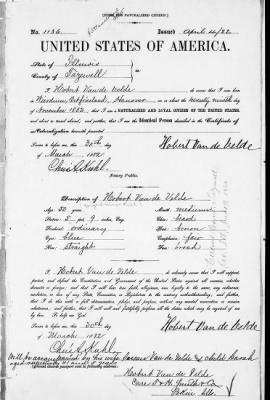 No. 1136. Issued April 4/82
UNITED STATES OF AMERICA.
State of Illinois
County of Tazewell
I, Hobert Van de Velde do swear that I was born
in Ostfriesland, Hanover on or about the
of November 1832, that I am a NATURALIZED AND LOYAL CITIZEN OF THE UNITED STATES,
and about to travel abroad; and further, that I am the Identical Person described in the Certificate
of Naturalization herewith presented
Sworn to before me, this 30th day
of March, 1882
Notary Public.
Hobert Van de Velde
Description of Hobert Van de Velde
Age: 50 years Mouth: medium
Stature: 5 feet 9 inches, Eng. Chin:
Forehead: ordinary Hair: brown
Eyes: blue Complexion: fair
Nose: straight Face: broad
I, Hobert Van de Velde do solemnly swear that I will support,
protect, and defend the Constitution and Government of the United States against all enemies, whether
domestic or foreign; and that I will bear true faith, allegiance, and loyalty to the same, any ordinance,
resolution, or law of any State, Convention, or Legislature to the contrary notwithstanding; and further,
that I do this with a full determination, pledge, and purpose, without any mental reservation or
evasion whatsoever; and further, that I will well and faithfully perform all the duties which may be required of me
by law. So help me God
Sworn to before me, this 30th day
of March 1882
Hobert Van de Velde
Will be accompanied by his wife Van de Velde & child
Herbert Van de Velde
Care & Co
Pekin Ills.